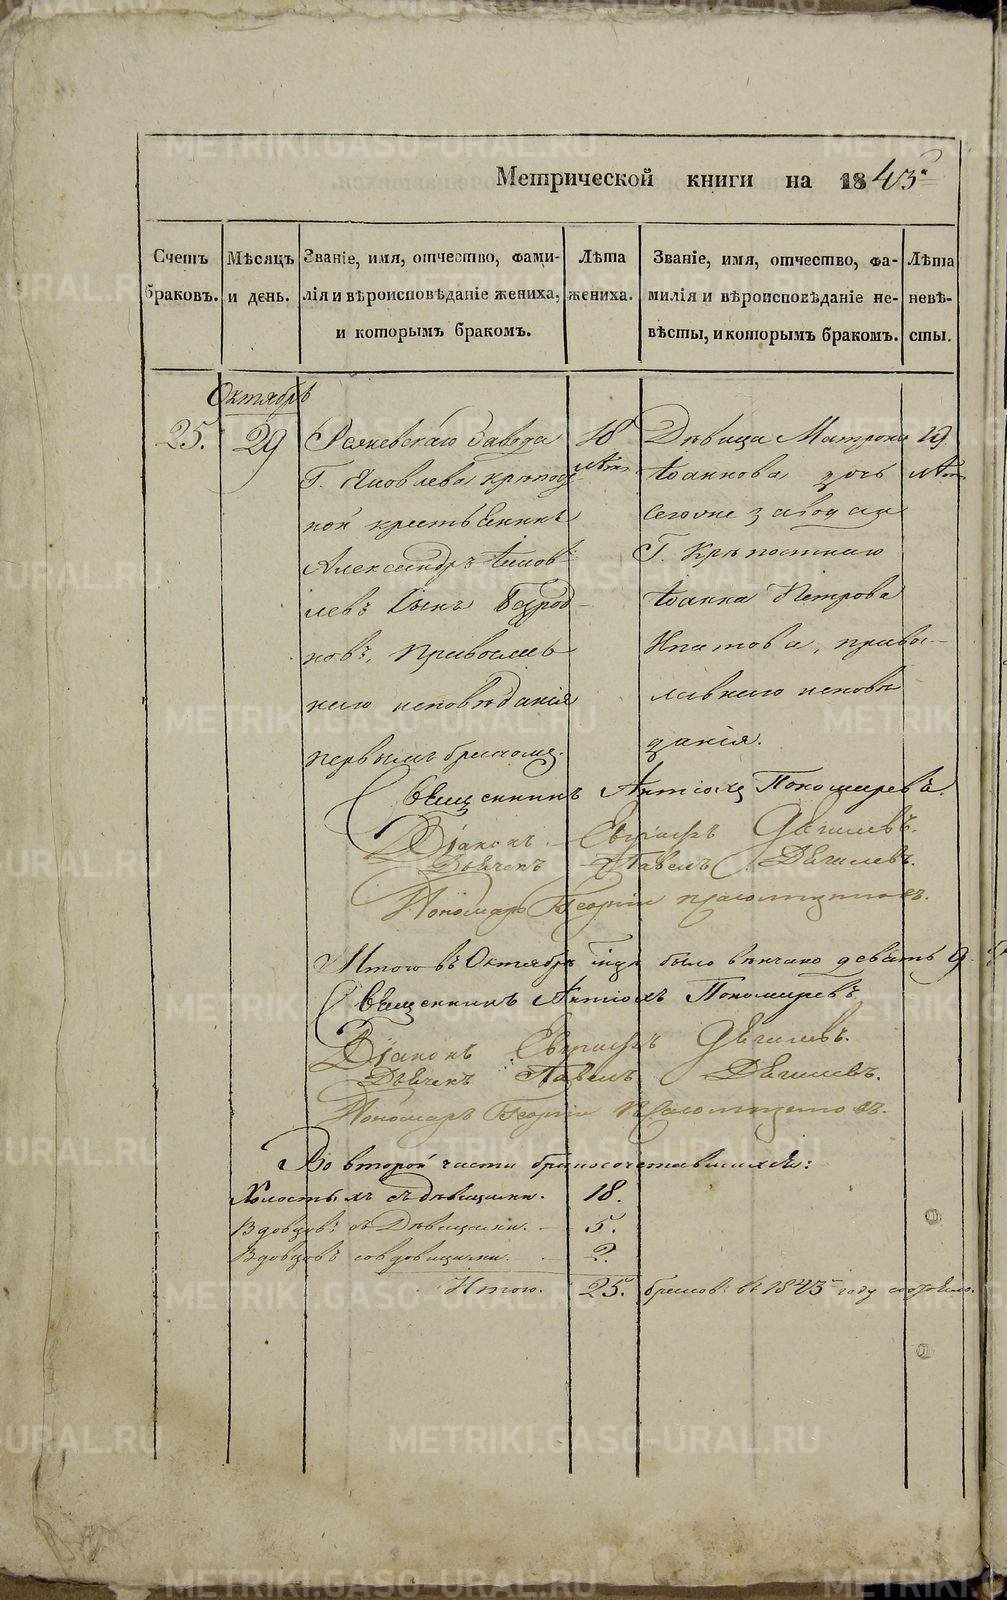 Метрической книги на 1843.
Счетъ браковъ.
Мѣсяцъ и день.
Званіе, имя, отчество, фами-
лія и вѣроисповѣданіе жениха,
и которымъ бракомъ.
Лѣта
жениха.
Званіе, имя, отчество, фа-
милія и вѣроисповѣданіе не-
вѣсты, и которымъ бракомъ.
Лѣта
невѣ-
сты.
Октябрь
25. 29
завода
Г. Яковлева крѣпост
ной крестьенинъ
Александръ
левъ сынъ
новъ, Православ
наго исповѣданія
первымъ бракомъ.
18
лѣтъ
Дѣвица Матрона
Іоаннова дочь
сегоже завода
Г. Крѣпостнаго
Іоанна Петрова
Ипатова, право-
лавнаго исповѣ
данія.
19
лѣтъ
Священникъ Антіохъ Пономаревъ.
Діаконъ Евграфъ Дягилевъ.
Дьячекъ Павелъ Дягилевъ.
Пономарь Георгій
Итого въ Октябрѣ было вѣнчано девять 9
Священникъ Антіохъ Пономаревъ
Діаконъ Евграфъ Дягилевъ.
Дьячекъ Павелъ Дягилевъ.
Пономарь Георгій
Во второй части бракосочетавшихся:
Холостыхъ съ дѣвицами. 18.
Вдовцовъ съ Дѣвицами. 5.
Вдовцовъ со вдовицами. 2.
Итого. 25. браковъ въ 1843 году
METRIKI.GASO-URAL.RU